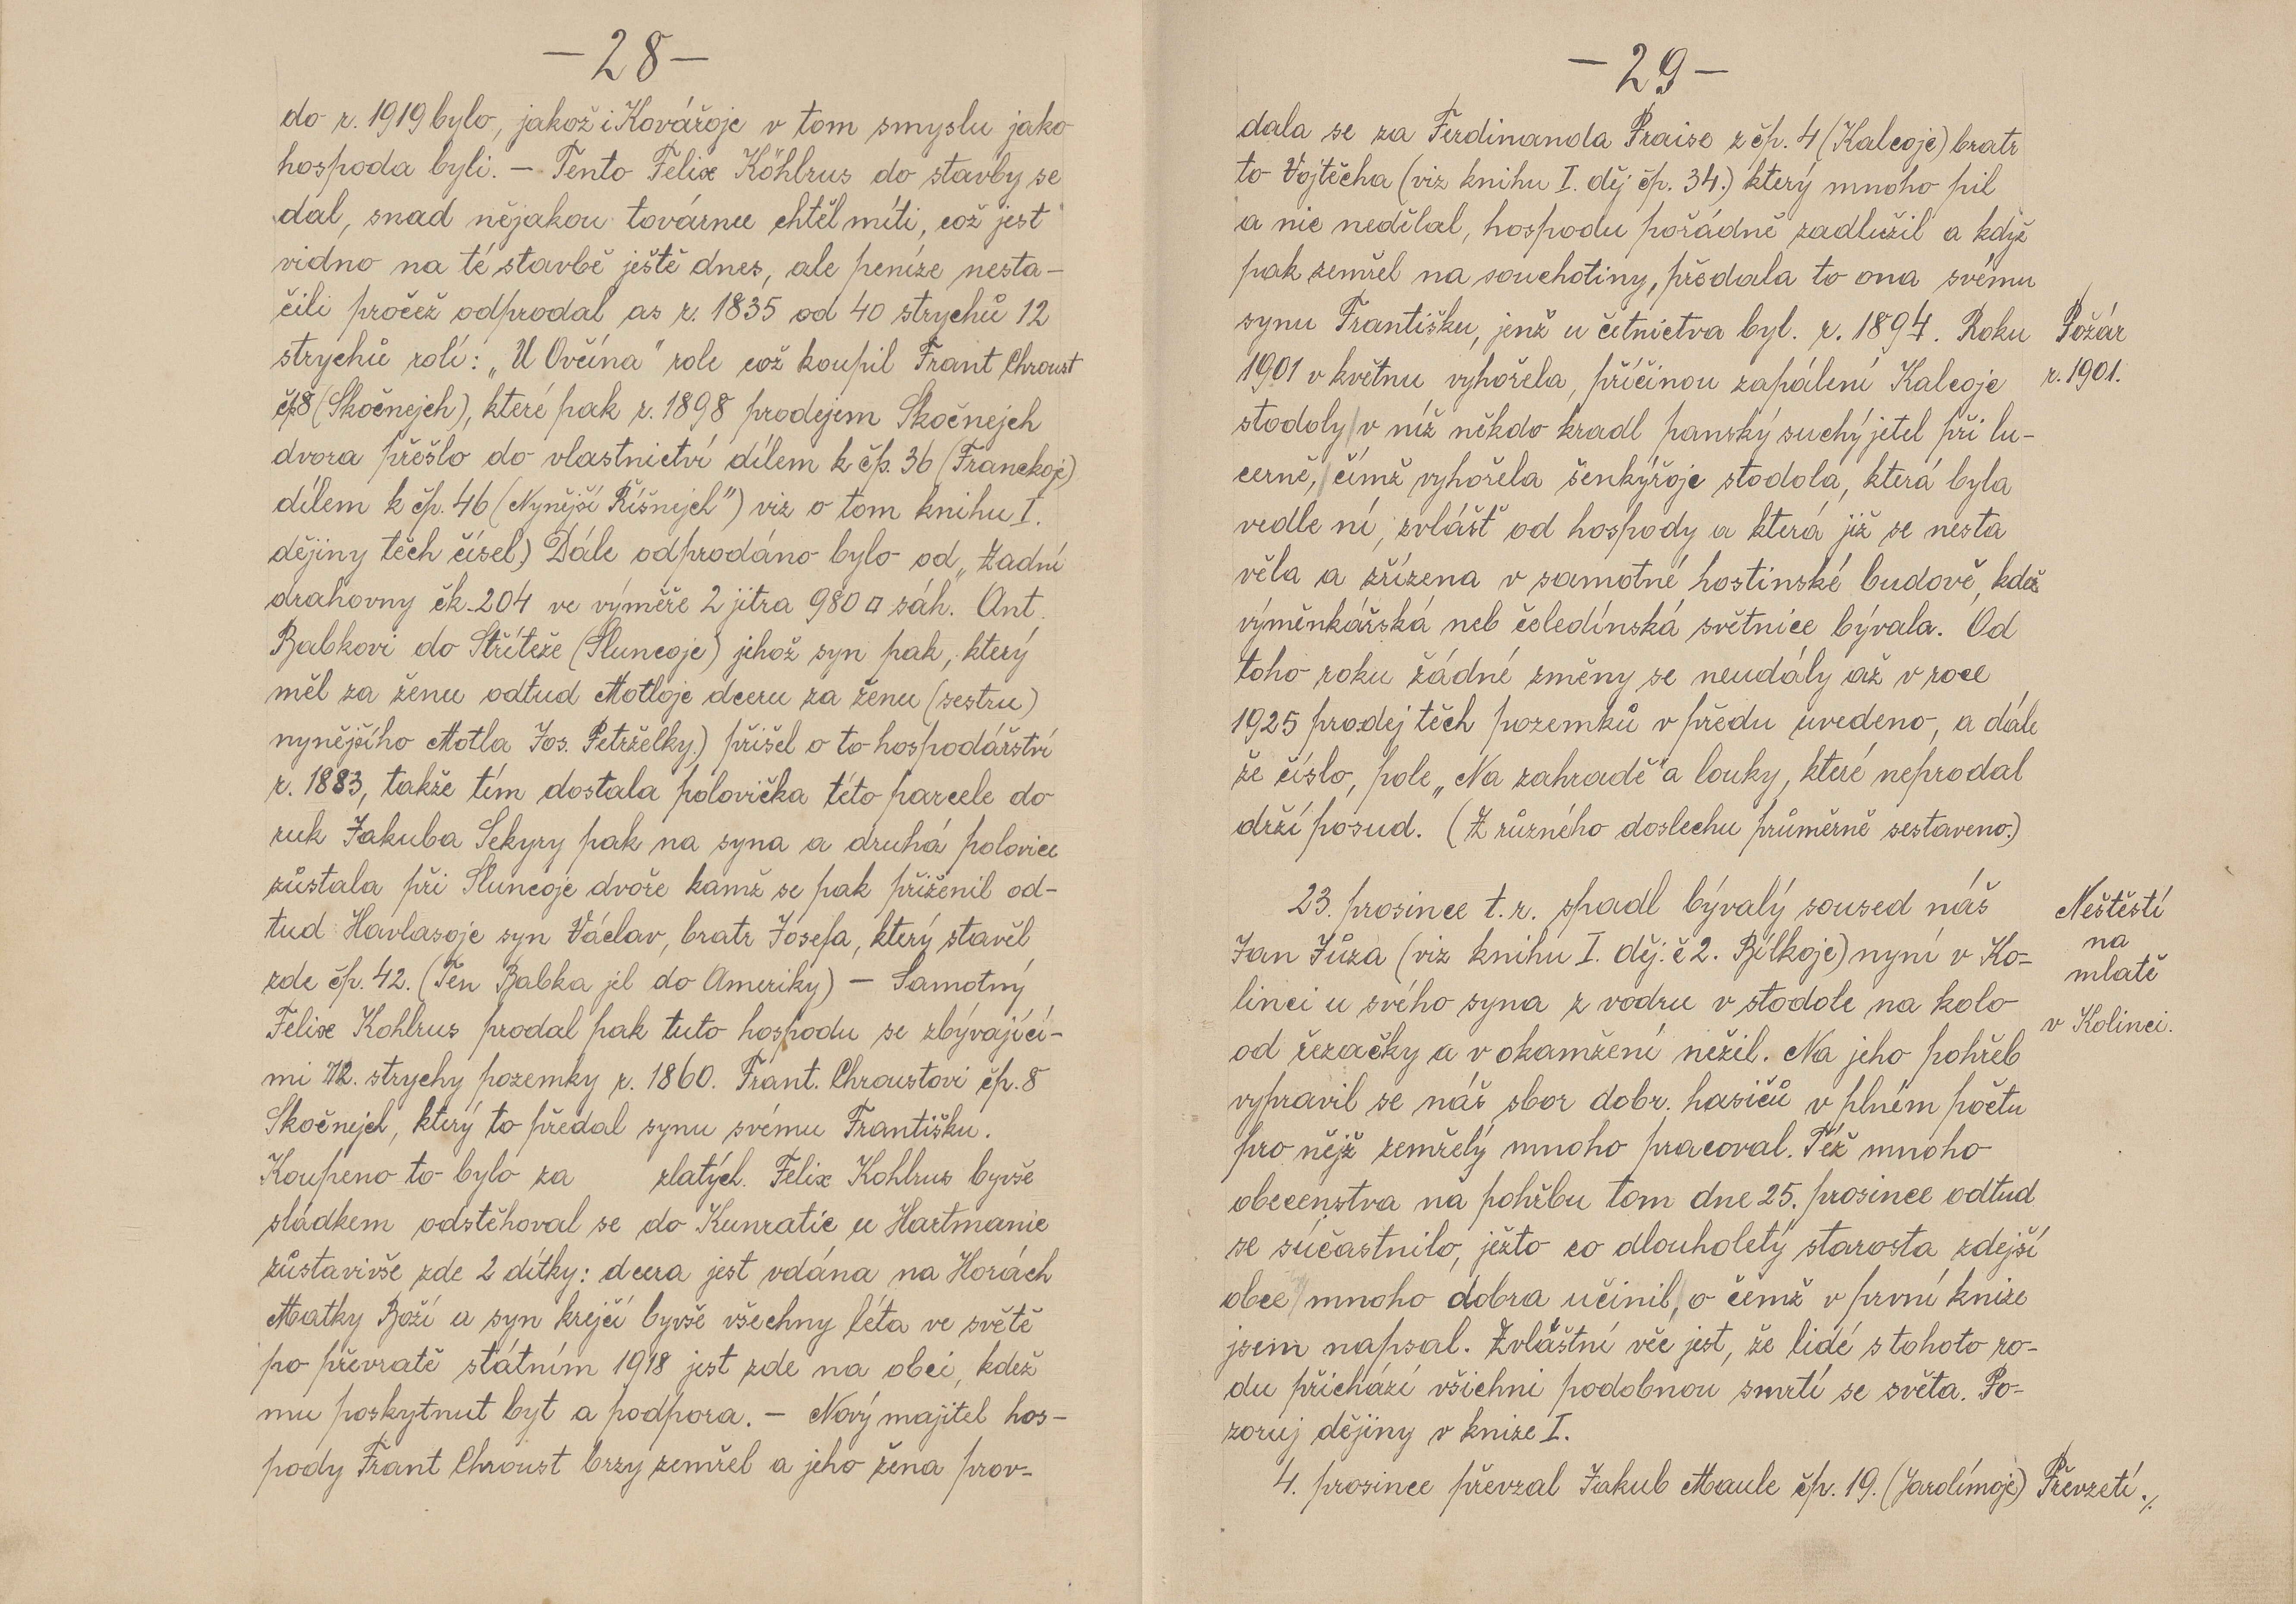 —28—
do r. 1919 bylo, jakož i Kovářoje v tom smyslu jako
hospoda byli. — Tento Felix Köhlrus do stavby se
dal, snad nějakou továrnu chtěl míti, což jest
vidno na té stavbě ještě dnes, ale peníze nesta-
čili pročež odprodal as r. 1835 od 40 strychů 12
strychů rolí: „U Ovčína" role což koupil Frant Chroust
čp8 (Skočnejch), které pak r. 1898 prodejem Skočnejch
dvora přešlo do vlastnictví dílem k čp. 36 (Franckoje)
dílem k čp. 46 (Nynější Říšnejch") viz o tom knihu I.
dějiny těch čísel) Dále odprodáno bylo od „Zadní
drahovny čk. 204 ve výměře 2 jitra 980 □ sáh. Ant.
Babkovi do Stříteže (Sluncoje) jehož syn pak, který
měl za ženu odtud Motloje dceru za ženu (sestru)
nynějšího Motla Jos. Petrželky.) přišel o to hospodářství
r. 1883, takže tím dostala polovička této parcele do
ruk Jakuba Sekyry pak na syna a druhá polovice
zůstala při Sluncoje dvoře kamž se pak přiženil od-
tud Havlasoje syn Václav, bratr Josefa, který stavěl
zde čp. 42. (Ten Babka jel do Ameriky) — Samotný
Felix Kohlrus prodal pak tuto hospodu se zbývající-
mi 12. strychy pozemky r. 1860. Frant. Chroustovi čp. 8
Skočnejch, který to předal synu svému Františku.
Koupeno to bylo za zlatých. Felix Kohlrus byvše
sládkem odstěhoval se do Kunratic u Hartmanic
zůstavivše zde 2 dítky: dcera jest vdána na Horách
Matky Boží a syn krejčí byvše všechny léta ve světě
po převratě státním 1918 jest zde na obci, kdež
mu poskytnut byt a podpora. — Nový majitel hos-
pody Frant Chroust brzy zemřel a jeho žena prov-
—29—
dala se za Ferdinanda Praise z čp. 4 (Kalcoje) bratr
to Vojtěcha (viz knihu I. děj čp. 34.) který mnoho pil
a nic nedělal, hospodu pořádně zadlužil a když
pak zemřel na souchotiny, předala to ona svému
synu Františku, jenž u četnictva byl. r. 1894. Roku
Požár
1901 v květnu vyhořela, příčinou zapálení Kalcoje
r. 1901.
stodoly v níž někdo kradl panský suchý jetel při lu-
cerně, čímž vyhořela šenkýřoje stodola, která byla
vedle ní, zvlášť od hospody a která již se nesta
věla a zřízena v samotné hostinské budově, kdež
výměnkářská neb čeledínská světnice bývala. Od
toho roku žádné změny se neudály až v roce
1925 prodej těch pozemků v předu uvedeno, a dále
že číslo, pole „Na zahradě" a louky, které neprodal
drží posud. (Z různého doslechu průměrně sestaveno.)
23. prosince t. r. spadl bývalý soused náš
Neštěstí
na
mlatě
v Kolinci.
Jan Jůza (viz knihu I. děj. č 2. Bílkoje) nyní v Ko-
linci u svého syna z vodru v stodole na kolo
od řezačky a v okamžení nežil. Na jeho pohřeb
vypravil se náš sbor dobr. hasičů v plném počtu
pro nějž zemřelý mnoho pracoval. Též mnoho
obecenstva na pohřbu tom dne 25. prosince odtud
se súčastnilo, ježto co dlouholetý starosta zdejší
obce mnoho dobra učinil, o čemž v první knize
jsem napsal. Zvláštní věc jest, že lidé s tohoto ro-
du přichází všichni podobnou smrtí se světa. Po-
zoruj dějiny v knize I.
4. prosince převzal Jakub Maule čp. 19. (Jarolímoje)
Převzetí ./.